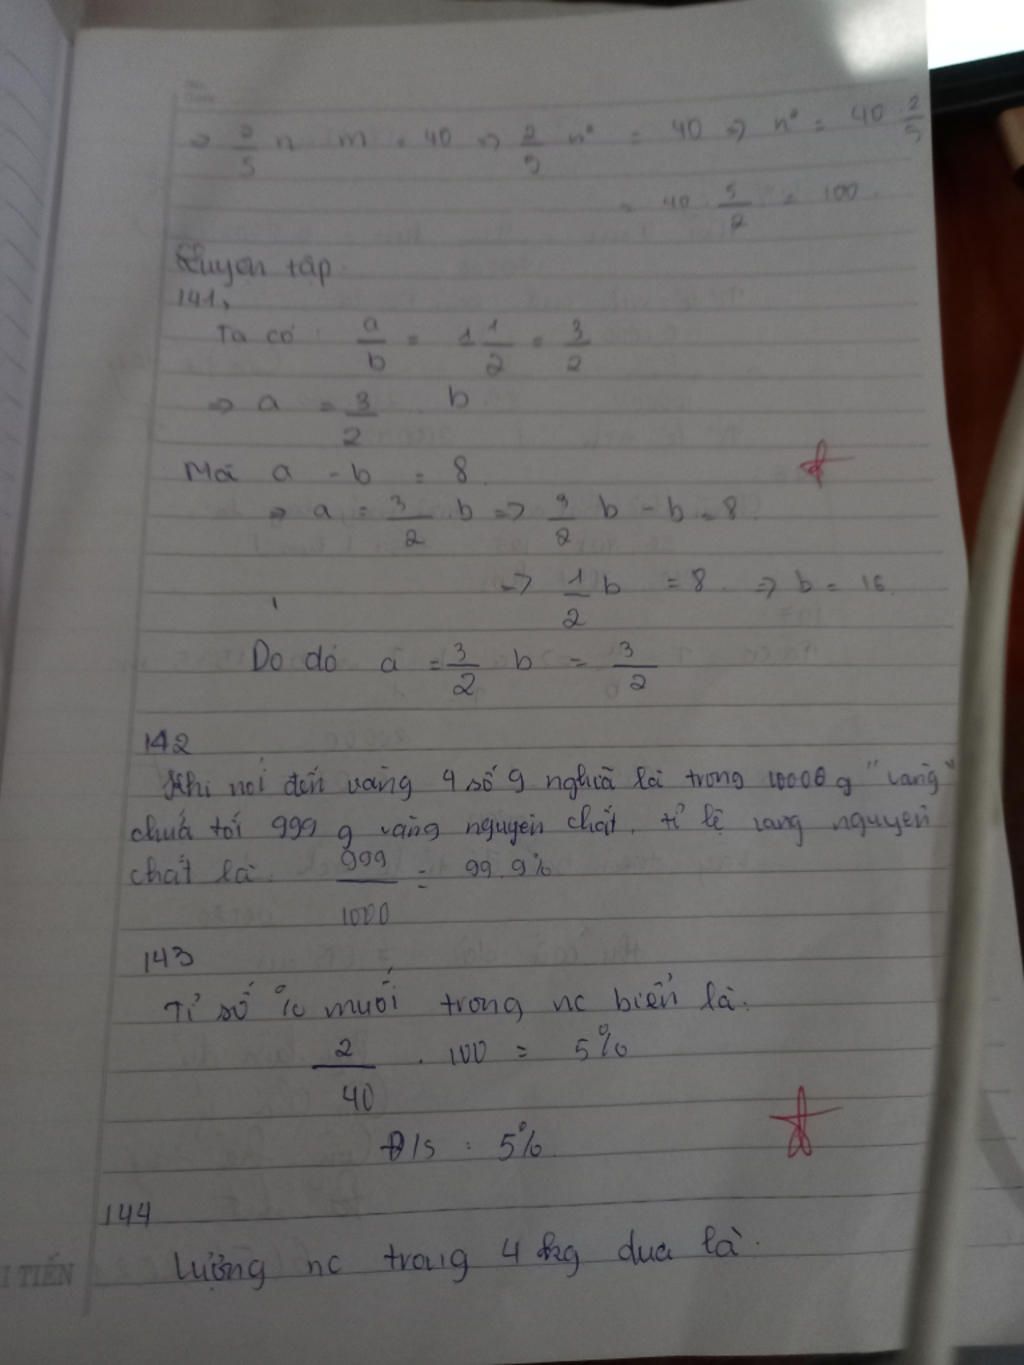 ⇒ 2/5 n m = 40 ⇒ 2/5 n° = 40 ⇒ n° = 40 : 2/5
= 40 . 5/2 = 100.
Luyện tập.
141,
Ta có : a/b = 1 1/2 = 3/2
⇒ a = 3/2 b
Mà a - b = 8.
⇒ a = 3/2 b => 3/2 b - b = 8.
=> 1/2 b = 8. => b = 16.
Do đó a = 3/2 b = 3/2
142
Khi nói đến vàng 4 số 9 nghĩa là trong 10000 g "vàng"
chứa tới 999 g vàng nguyên chất, tỉ lệ vàng nguyên
chất là. 999/1000 = 99,9%
143
Tỉ số % muối trong nc biển là.
2/40 . 100 = 5%
Đ/s : 5%
144
Lượng nc trong 4 kg dưa là.
I TIẾN